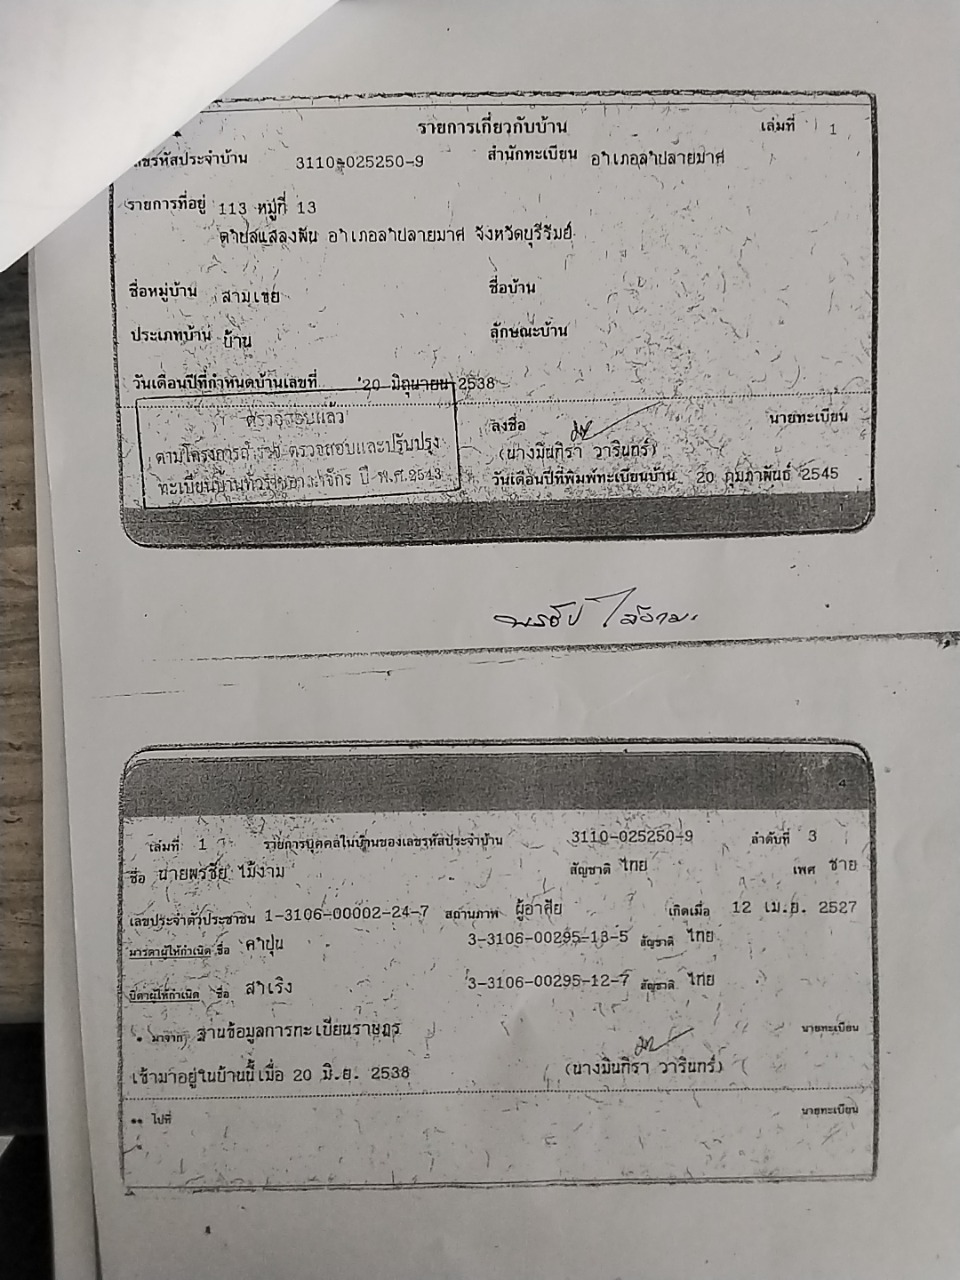 รายการเกี่ยวกับบ้าน เล่มที่ 1
เลขรหัสประจำบ้าน 3110-025250-9 สำนักทะเบียน อำเภอลำปลายมาศ
รายการที่อยู่ 113 หมู่ที่ 13
ตำบลแสลงพัน อำเภอลำปลายมาศ จังหวัดบุรีรัมย์
ชื่อหมู่บ้าน สามเขย ชื่อบ้าน
ประเภทบ้าน บ้าน ลักษณะบ้าน
วันเดือนปีที่กำหนดบ้านเลขที่ 20 มิถุนายน 2538
ตรวจสอบแล้ว
ตามโครงการสำรวจ ตรวจสอบและปรับปรุง
ทะเบียนบ้านทั่วราชอาณาจักร ปี พ.ศ.2543
ลงชื่อ นายทะเบียน
(นางมินทิรา วารินทร์)
วันเดือนปีที่พิมพ์ทะเบียนบ้าน 20 กุมภาพันธ์ 2545
พรชัย ไม้งาม
4
เล่มที่ 1 รายการบุคคลในบ้านของเลขรหัสประจำบ้าน 3110-025250-9 ลำดับที่ 3
ชื่อ นายพรชัย ไม้งาม สัญชาติ ไทย เพศ ชาย
เลขประจำตัวประชาชน 1-3106-00002-24-7 สถานภาพ ผู้อาศัย เกิดเมื่อ 12 เม.ย. 2527
มารดาผู้ให้กำเนิด ชื่อ คำปุน 3-3106-00295-13-5 สัญชาติ ไทย
บิดาผู้ให้กำเนิด ชื่อ สำเริง 3-3106-00295-12-7 สัญชาติ ไทย
* มาจาก ฐานข้อมูลการทะเบียนราษฎร นายทะเบียน
เข้ามาอยู่ในบ้านนี้เมื่อ 20 มิ.ย. 2538 (นางมินทิรา วารินทร์)
** ไปที่ นายทะเบียน